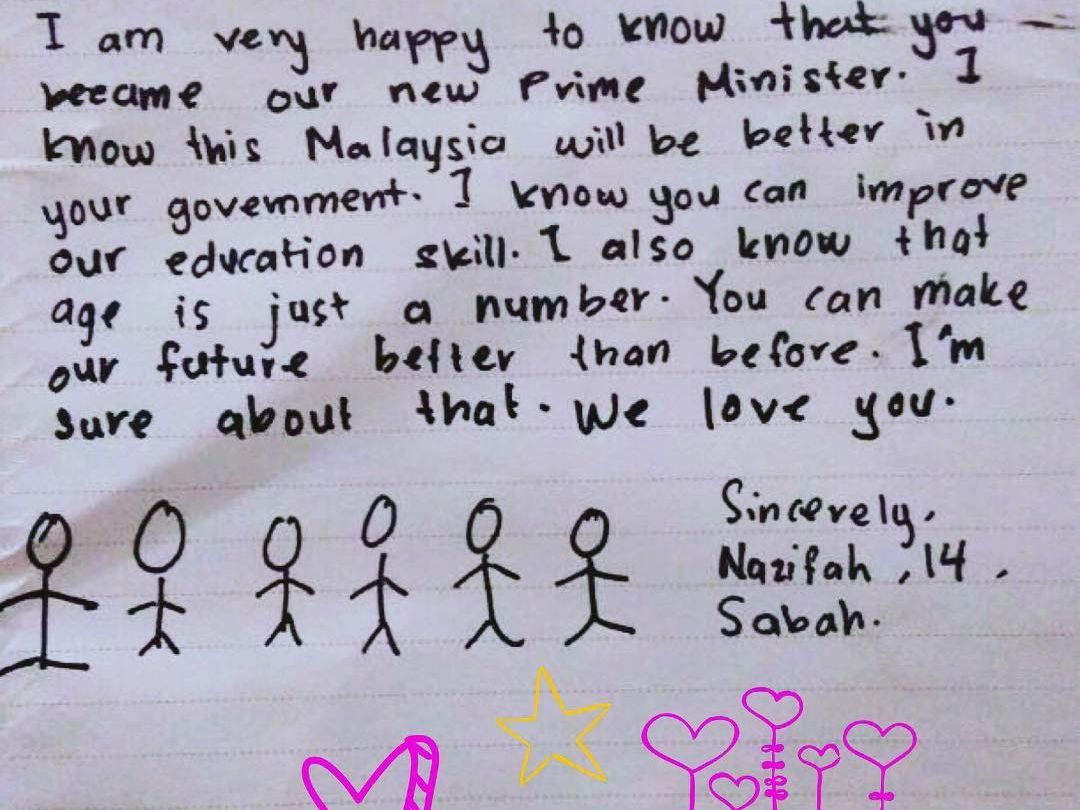 I am very happy to know that you
became our new Prime Minister. I
know this Malaysia will be better in
your government. I know you can improve
our education skill. I also know that
age is just a number. You can make
our future better than before. I'm
sure about that. We love you.
Sincerely,
Nazifah, 14,
Sabah.